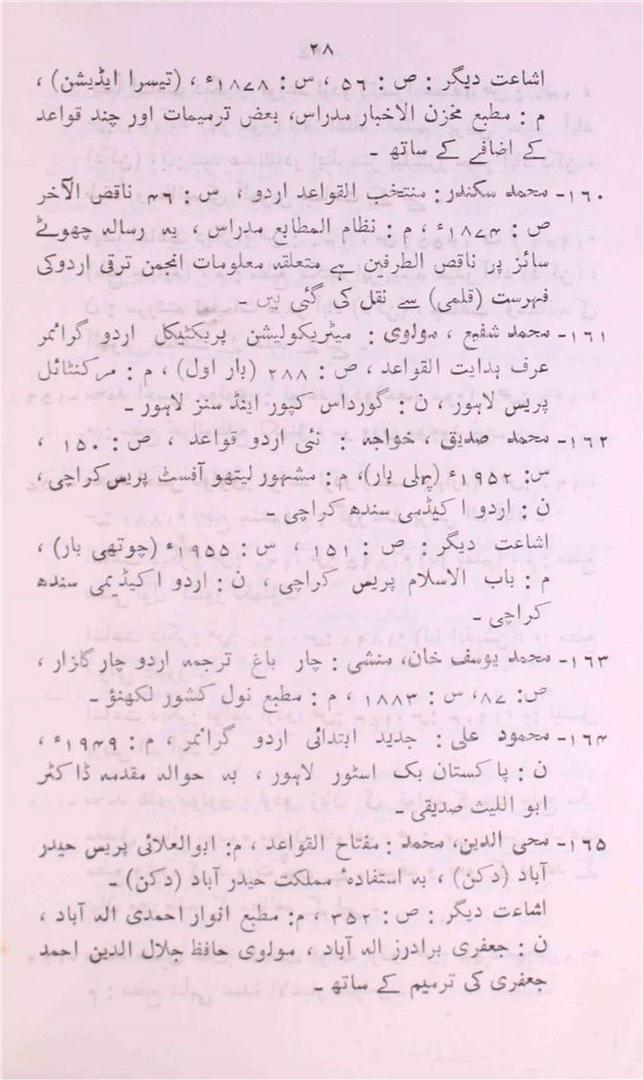 ۲۸
اشاعت دیگر : ص : ۵۶ ، س : ۱۸۷۸ء ، (تیسرا ایڈیشن) ،
م : مطبع مخزن الاخبار مدراس، بعض ترمیمات اور چند قواعد
کے اضافے کے ساتھ ۔
۱۶۰۔ محمد سکندر : منتخب القواعد اردو ، س : ۴۶ ناقص الآخر
ص : ۱۸۷۴ء ، م : نظام المطابع مدراس ، یہ رسالہ چھوٹے
سائز پر ناقص الطرفین ہے متعلقہ معلومات انجمن ترقی اردو کی
فہرست (قلمی) سے نقل کی گئی ہیں ۔
۱۶۱۔ محمد شفیع ، مولوی : میٹریکولیشن پریکٹیکل اردو گرائمر
عرف ہدایت القواعد ، ص : ۲۸۸ (بار اول) ، م : مرکنٹائل
پریس لاہور ، ن : گورداس کپور اینڈ سنز لاہور ۔
۱۶۲۔ محمد صدیق ، خواجہ : نئی اردو قواعد ، ص : ۱۵۰ ،
س: ۱۹۵۲ء (پہلی بار)، م : مشہور لیتھو آفسٹ پریس کراچی ،
ن : اردو اکیڈمی سندھ کراچی ۔
اشاعت دیگر : ص : ۱۵۱ ، س : ۱۹۵۵ء (چوتھی بار) ،
م : باب الاسلام پریس کراچی ، ن : اردو اکیڈیمی سندھ
کراچی ۔
۱۶۳۔ محمد یوسف خان، منشی : چار باغ ترجمہ اردو چار گلزار ،
ص : ۸۷، س : ۱۸۸۳ ، م : مطبع نول کشور لکھنؤ ۔
۱۶۴۔ محمود علی : جدید ابتدائی اردو گرائمر ، م : ۱۹۴۹ء ،
ن : پاکستان بک اسٹور لاہور ، بہ حوالہ مقدمہ ڈاکٹر
ابو اللیث صدیقی ۔
۱۶۵۔ محی الدین، محمد : مفتاح القواعد ، م : ابوالعلائی پریس حیدر
آباد (دکن) ، بہ استفادۂ مملکت حیدر آباد (دکن) ۔
اشاعت دیگر : ص : ۳۵۲ ، م : مطبع انوار احمدی الہ آباد ،
ن : جعفری برادرز الہ آباد ، مولوی حافظ جلال الدین احمد
جعفری کی ترمیم کے ساتھ ۔